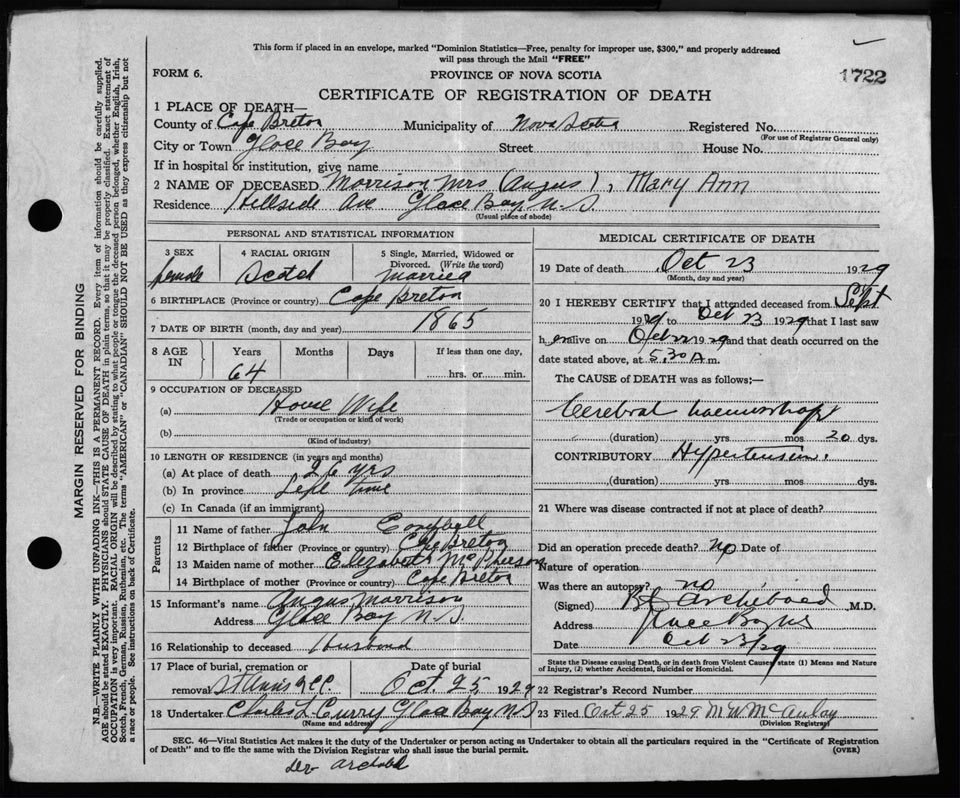 This form if placed in an envelope, marked "Dominion Statistics—Free, penalty for improper use, $300," and properly addressed
will pass through the Mail "FREE"
FORM 6.
PROVINCE OF NOVA SCOTIA
1722
CERTIFICATE OF REGISTRATION OF DEATH
1 PLACE OF DEATH—
County of Cape Breton Municipality of Nova Scotia Registered No.
(For use of Registrar General only)
City or Town Glace Bay Street House No.
If in hospital or institution, give name
2 NAME OF DECEASED Morrison Mrs (Angus), Mary Ann
Residence Hillside Ave Glace Bay N.S.
(Usual place of abode)
PERSONAL AND STATISTICAL INFORMATION
3 SEX
female
4 RACIAL ORIGIN
Scotch
5 Single, Married, Widowed or
Divorced. (Write the word)
Married
6 BIRTHPLACE (Province or country) Cape Breton
7 DATE OF BIRTH (month, day and year) 1865
8 AGE
IN
Years
64
Months
Days
If less than one day,
hrs. or min.
9 OCCUPATION OF DECEASED
(a) House Wife
(Trade or occupation or kind of work)
(b)
(Kind of industry)
10 LENGTH OF RESIDENCE (in years and months)
(a) At place of death 26 yrs
(b) In province time
(c) In Canada (if an immigrant)
Parents
11 Name of father John
12 Birthplace of father (Province or country) Cape Breton
13 Maiden name of mother Elizabeth McPherson
14 Birthplace of mother (Province or country) Cape Breton
15 Informant's name Angus Morrison
Address Glace Bay N.S.
16 Relationship to deceased Husband
17 Place of burial, cremation or
removal
Date of burial
Oct. 25 1929
18 Undertaker Charles L Curry Glace Bay N.S
(Name and address)
MEDICAL CERTIFICATE OF DEATH
19 Date of death Oct 23 1929
(Month, day and year)
20 I HEREBY CERTIFY that I attended deceased from Sept
1929 to Oct 23 1929 that I last saw
her alive on Oct 22 1929 and that death occurred on
date stated above, at 5.30 A m.
The CAUSE of DEATH was as follows:—
Cerebral haemorrhage
(duration) yrs mos 20 dys.
CONTRIBUTORY Hypertension.
(duration) yrs. mos. dys.
21 Where was disease contracted if not at place of death?
Did an operation precede death? no Date of
Nature of operation
Was there an autopsy? no
(Signed) Archibald M.D.
Address Glace Bay NS
Date Oct 23/29
State the Disease causing Death, or in death from Violent Causes state (1) Means and Nature
of Injury, (2) whether Accidental, Suicidal or Homicidal.
22 Registrar's Record Number
23 Filed Oct 25 1929 M W McAulay
(Division Registrar)
SEC. 46—Vital Statistics Act makes it the duty of the Undertaker or person acting as Undertaker to obtain all the particulars required in the "Certificate of Registration
of Death" and to file the same with the Division Registrar who shall issue the burial permit.
(OVER)
MARGIN RESERVED FOR BINDING
N.B.—WRITE PLAINLY WITH UNFADING INK—THIS IS A PERMANENT RECORD. Every item of information should be carefully supplied.
AGE should be stated EXACTLY. PHYSICIANS should STATE CAUSE OF DEATH in plain terms, so that it may be properly classified. Exact statement of
OCCUPATION is very important. RACIAL ORIGIN will be described by stating to what people or tongue the deceased person belonged, whether English, Irish,
Scotch, French, German, Russian, Ruthenian, etc. The terms "AMERICAN" or "CANADIAN" SHOULD NOT BE USED as they express citizenship but not
a race or people. See instructions on back of Certificate.